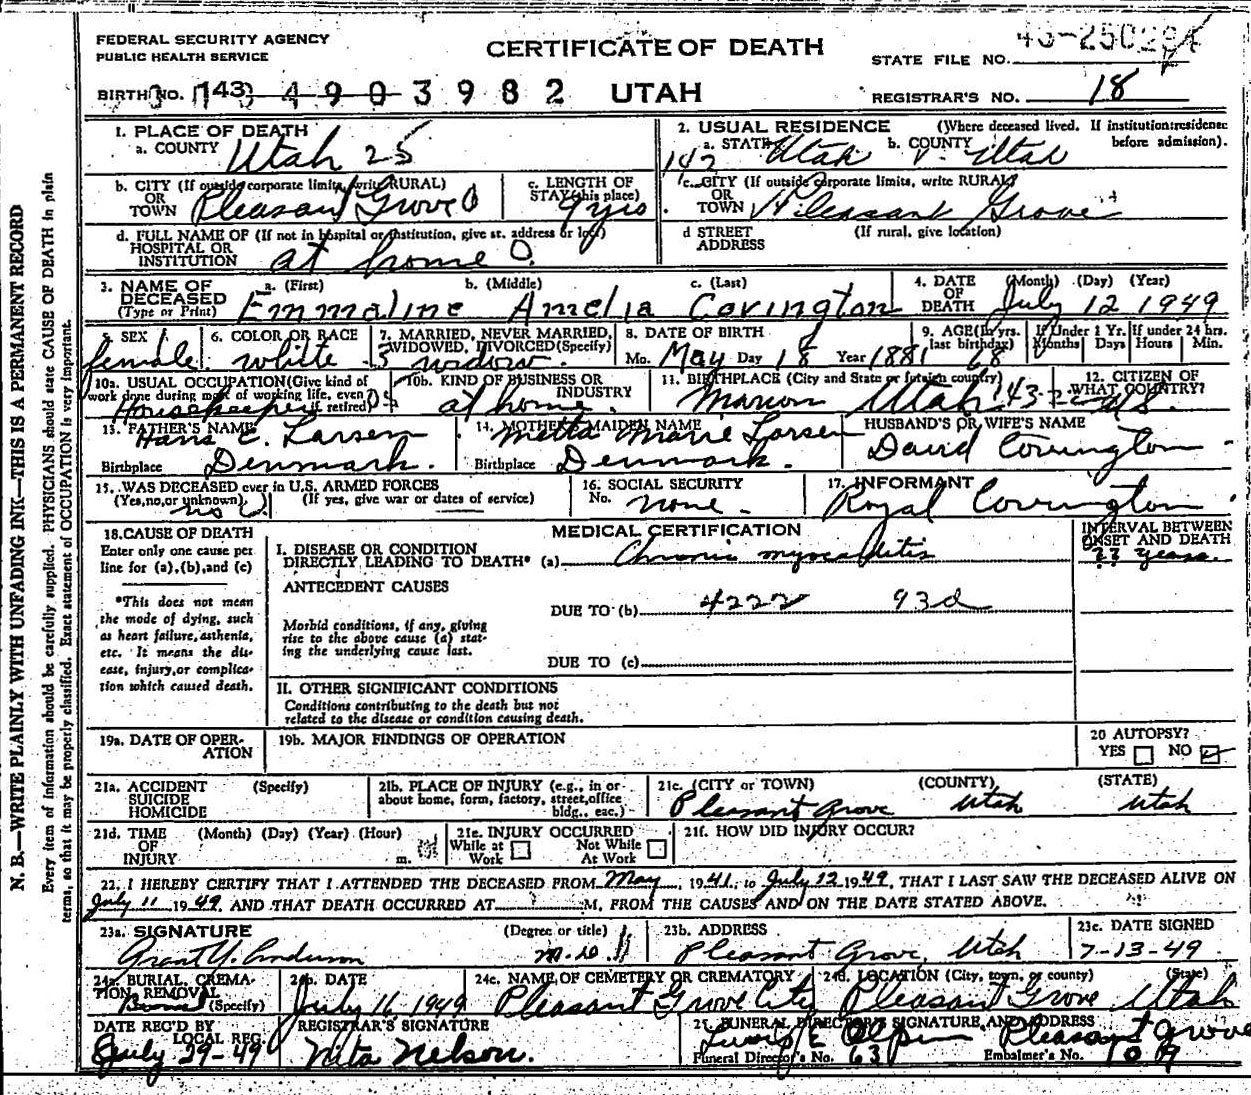 FEDERAL SECURITY AGENCY
PUBLIC HEALTH SERVICE
CERTIFICATE OF DEATH
STATE FILE NO.
BIRTH NO. 143 4903982 UTAH
REGISTRAR'S NO. 18
1. PLACE OF DEATH
a. COUNTY Utah 25
2. USUAL RESIDENCE (Where deceased lived. If institution:residence before admission).
142 a. STATE Utah b. COUNTY Utah
b. CITY (If outside corporate limits, write RURAL) OR TOWN Pleasant Grove 0
c. LENGTH OF STAY (this place) 9 yrs
c. CITY (If outside corporate limits, write RURAL) OR TOWN Pleasant Grove
d. FULL NAME OF (If not in hospital or institution, give st. address or loc.)
HOSPITAL OR INSTITUTION at home 0.
d STREET ADDRESS (If rural, give location)
3. NAME OF DECEASED (Type or Print) a. (First) b. (Middle) c. (Last)
Emmaline Amelia Covington
4. DATE OF DEATH (Month) (Day) (Year)
July 12 1949
5. SEX female
6. COLOR OR RACE white
7. MARRIED, NEVER MARRIED, WIDOWED, DIVORCED(Specify) 3 widow.
8. DATE OF BIRTH
Mo. May Day 18 Year 1881
9. AGE(In yrs. last birthday) 68
If Under 1 Yr. Months Days
If under 24 hrs. Hours Min.
10a. USUAL OCCUPATION(Give kind of work done during most of working life, even if retired) Housekeeper
10b. KIND OF BUSINESS OR INDUSTRY at home.
11. BIRTHPLACE (City and State or foreign country) Marion Utah
12. CITIZEN OF WHAT COUNTRY? U.S.
13. FATHER'S NAME Hans C. Larsen
Birthplace Denmark.
14. MOTHER'S MAIDEN NAME Metta Marie Larsen
Birthplace Denmark.
HUSBAND'S OR WIFE'S NAME
David Covington
15. WAS DECEASED ever in U.S. ARMED FORCES
(Yes,no,or unknown) no (If yes, give war or dates of service)
16. SOCIAL SECURITY
No. none
17. INFORMANT
Royal Covington
18.CAUSE OF DEATH
Enter only one cause per
line for (a),(b),and (c)
*This does not mean
the mode of dying, such
as heart failure, asthenia,
etc. It means the dis-
ease, injury,or complica-
tion which caused death.
MEDICAL CERTIFICATION
I. DISEASE OR CONDITION
DIRECTLY LEADING TO DEATH* (a) Chronic myocarditis
INTERVAL BETWEEN
ONSET AND DEATH
?? years.
ANTECEDENT CAUSES
DUE TO (b) 4222 93d
Morbid conditions, if any, giving
rise to the above cause (a) stat-
ing the underlying cause last.
DUE TO (c)
II. OTHER SIGNIFICANT CONDITIONS
Conditions contributing to the death but not
related to the disease or condition causing death.
19a. DATE OF OPER-
ATION
19b. MAJOR FINDINGS OF OPERATION
20 AUTOPSY?
YES NO
21a. ACCIDENT (Specify)
SUICIDE
HOMICIDE
21b. PLACE OF INJURY (e.g., in or
about home, form, factory, street,office
bldg., eac.)
21c. (CITY or TOWN) (COUNTY) (STATE)
Pleasant Grove Utah Utah
21d. TIME (Month) (Day) (Year) (Hour)
OF
INJURY m.
21e. INJURY OCCURRED
While at Work Not While At Work
21f. HOW DID INJURY OCCUR?
22. I HEREBY CERTIFY THAT I ATTENDED THE DECEASED FROM May, 1941, to July 12 1949, THAT I LAST SAW THE DECEASED ALIVE ON
July 11 1949, AND THAT DEATH OCCURRED AT M, FROM THE CAUSES AND ON THE DATE STATED ABOVE.
23a. SIGNATURE (Degree or title)
Grant Y. Anderson M.D.
23b. ADDRESS
Pleasant Grove, Utah
23c. DATE SIGNED
7-13-49
24a. BURIAL, CREMA-
TION, REMOVAL (Specify)
24b. DATE
July 16 1949
24c. NAME OF CEMETERY OR CREMATORY
Pleasant Grove City
24d. LOCATION (City, town, or county) (State)
Pleasant Grove Utah
DATE REC'D BY
LOCAL REG.
July 29-49
REGISTRAR'S SIGNATURE
Nita Nelson.
FUNERAL DIRECTOR'S SIGNATURE AND ADDRESS
Olpin Pleasant Grove
Funeral Director's No. 63 Embalmer's No. 109
N. B.—WRITE PLAINLY WITH UNFADING INK—THIS IS A PERMANENT RECORD
Every item of information should be carefully supplied. PHYSICIANS should state CAUSE OF DEATH in plain
terms, so that it may be properly classified. Exact statement of OCCUPATION is very important.